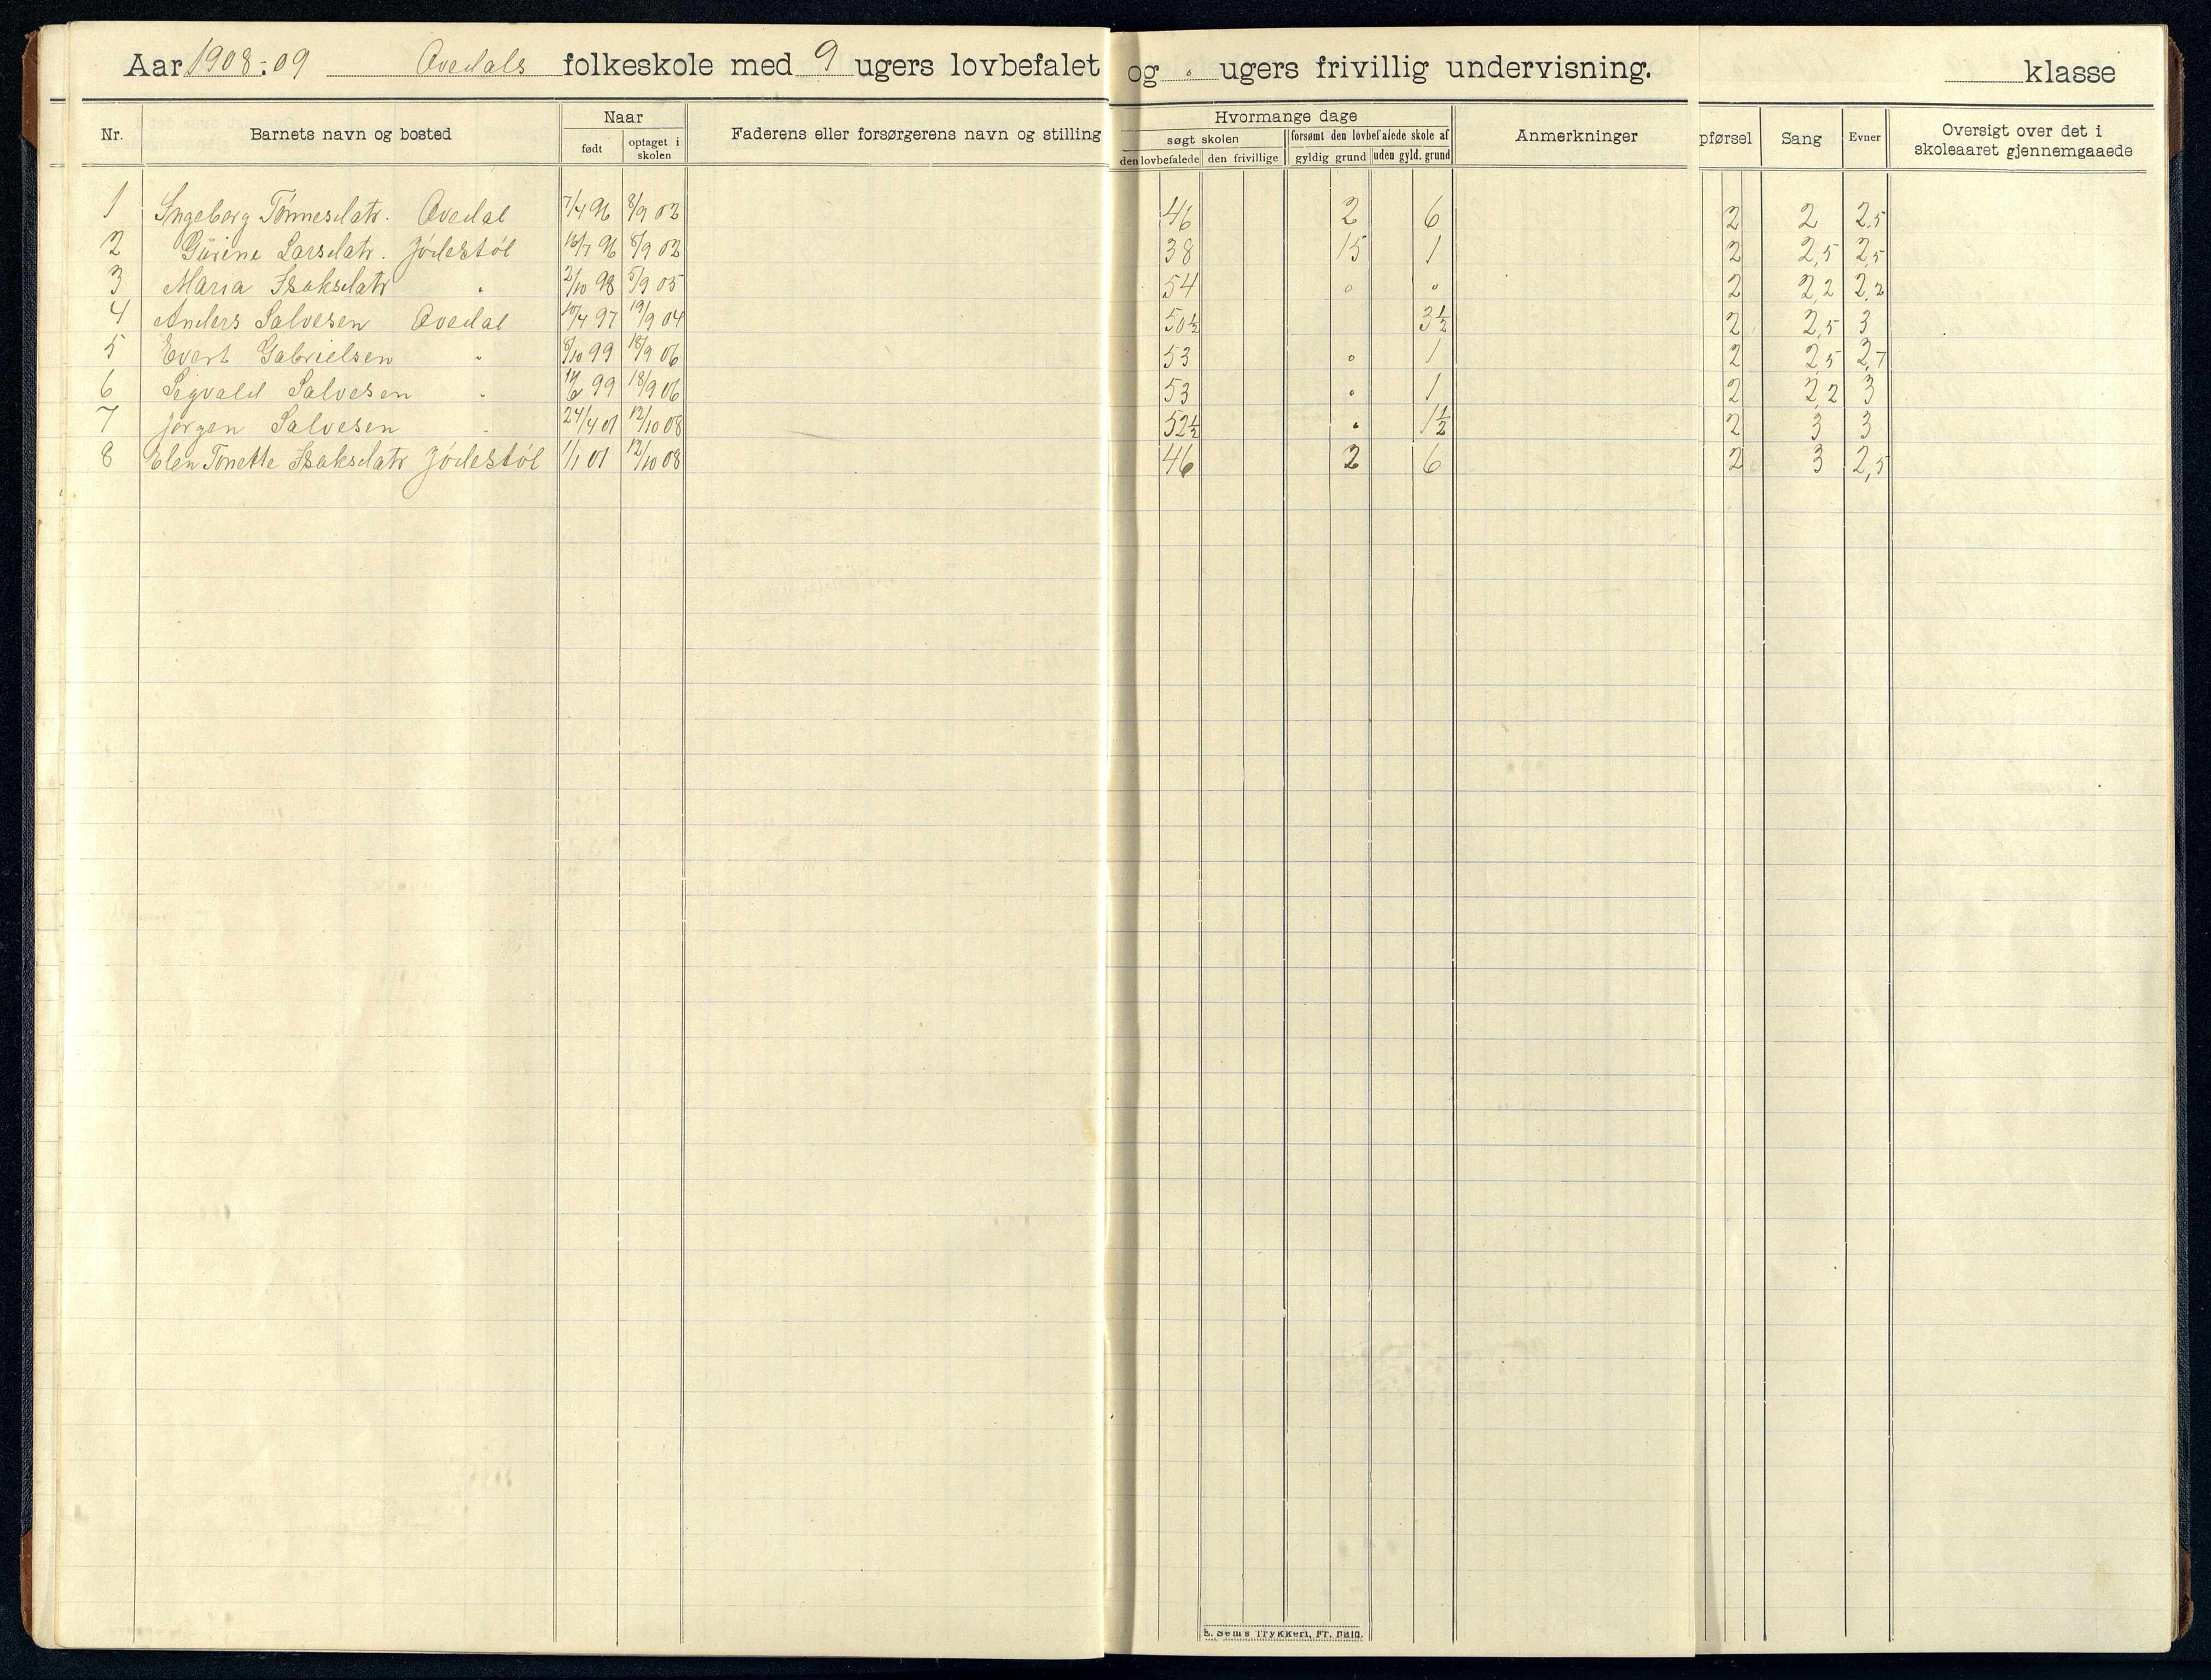 Aar 1908-09 Ovedals folkeskole med 9 ugers lovbefalet og " ugers frivillig undervisning. klasse
Nr. Barnets navn og bosted Naar Faderens eller forsørgerens navn og stilling Hvormange dage Anmerkninger pførsel Sang Evner Oversigt over det i skoleaaret gjennemgaaede
født optaget i skolen søgt skolen forsømt den lovbefalede skole af
den lovbefalede den frivillige gyldig grund uden gyld. grund
1 Ingeborg Tønnesdatr. Ovedal 7/4 96 8/9 02 46 2 6 2 2 2,5
2 Gurine Larsdatr. Jødestøl 16/7 96 8/9 02 38 15 1 2 2,5 2,5
3 Maria Isaksdatr " 2/10 98 5/9 05 54 " " 2 2,2 2,2
4 Anders Salvesen Ovedal 10/4 97 19/9 04 50½ 3½ 2 2,5 3
5 Evert Gabrielsen " 8/10 99 18/9 06 53 " 1 2 2,5 2,7
6 Sigvald Salvesen " 99 18/9 06 53 " 1 2 2,2 3
7 Jørgen Salvesen " 24/4 01 12/10 08 52½ " 1½ 2 3 3
8 Elen Tonette Isaksdatr Jødestøl 1/1 01 12/10 08 46 2 6 2 3 2,5
E. Sem's Trykkeri, Fr. hald.